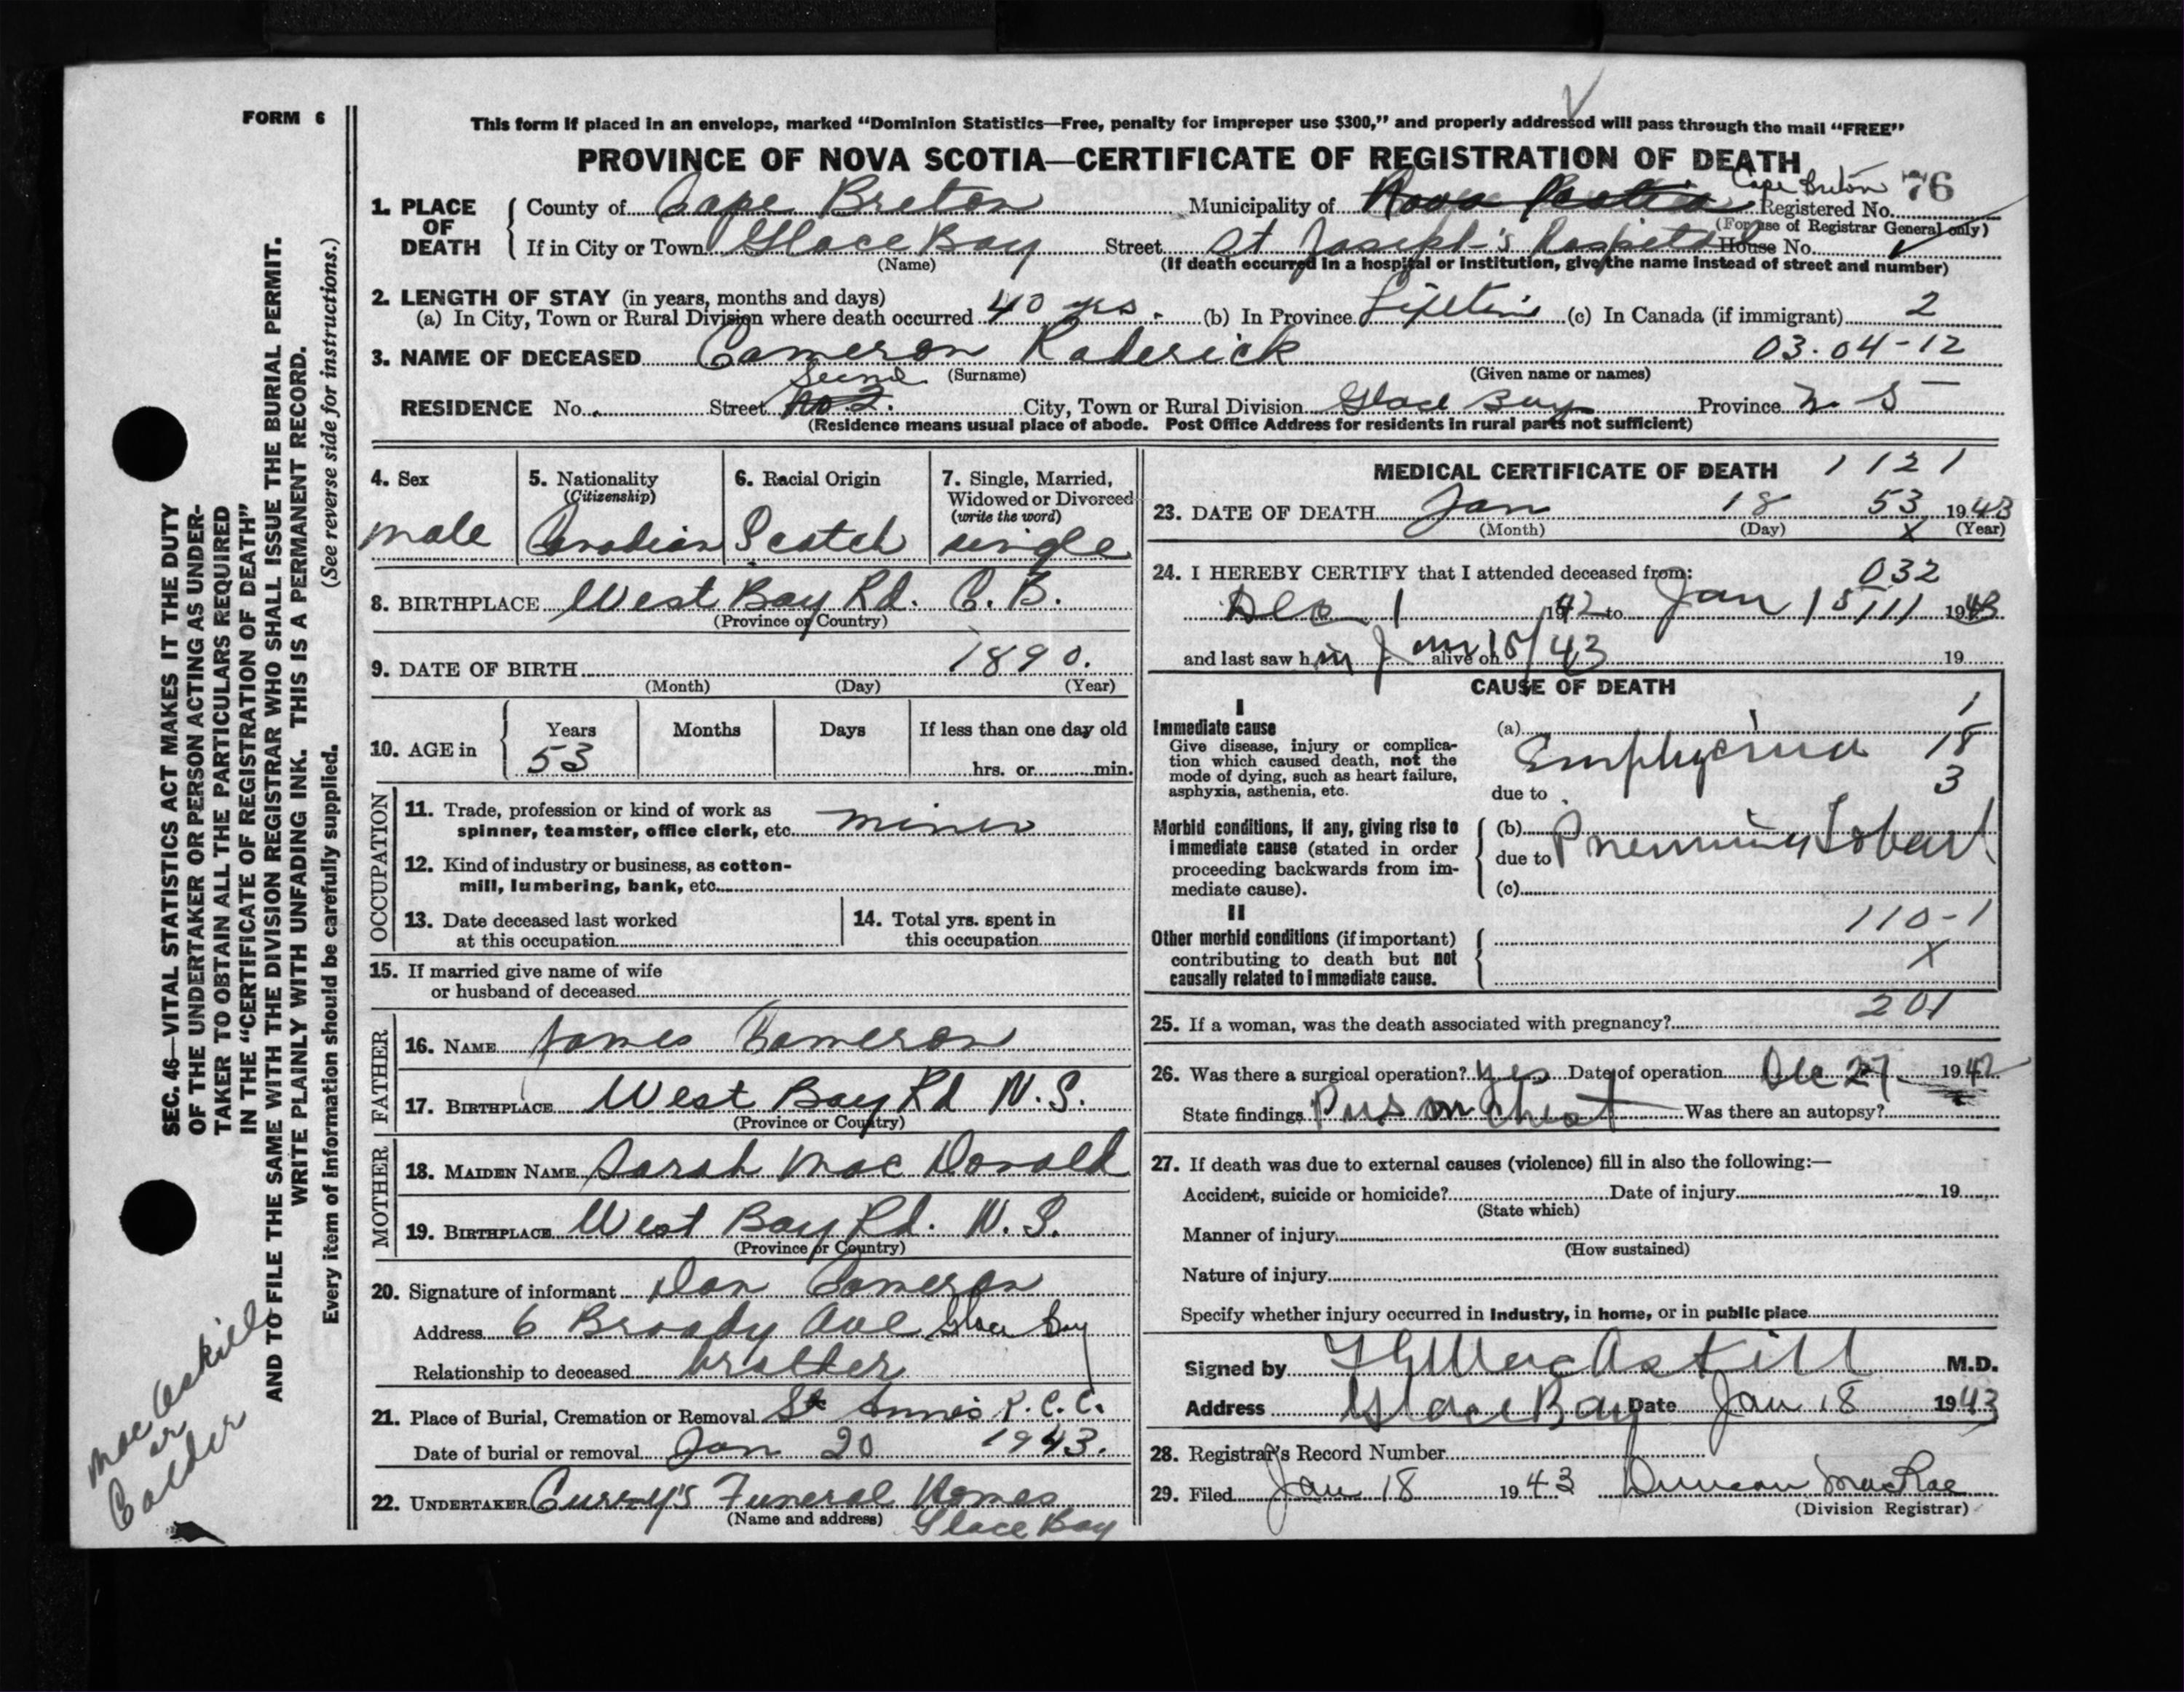 FORM 6
This form if placed in an envelope, marked “Dominion Statistics—Free, penalty for improper use $300,” and properly addressed will pass through the mail “FREE”
PROVINCE OF NOVA SCOTIA—CERTIFICATE OF REGISTRATION OF DEATH
Cape Breton 76
1. PLACE OF DEATH { County of Cape Breton Municipality of Nova Scotia Registered No.
(For use of Registrar General only)
If in City or Town Glace Bay Street St Joseph's Hospital House No.
(Name) (If death occurred in a hospital or institution, give the name instead of street and number)
2. LENGTH OF STAY (in years, months and days)
(a) In City, Town or Rural Division where death occurred 40 yrs. (b) In Province Lifetime (c) In Canada (if immigrant) 2
3. NAME OF DECEASED Cameron Roderick 03-04-12
(Surname) (Given name or names)
Second
RESIDENCE No. Street No. 2. City, Town or Rural Division Glace Bay Province N S
(Residence means usual place of abode. Post Office Address for residents in rural parts not sufficient)
4. Sex male
5. Nationality (Citizenship) Canadian
6. Racial Origin Scotch
7. Single, Married, Widowed or Divorced (write the word) single
8. BIRTHPLACE West Bay Rd. C. B.
(Province or Country)
9. DATE OF BIRTH 1890.
(Month) (Day) (Year)
10. AGE in { Years Months Days If less than one day old
53 hrs. or min.
OCCUPATION
11. Trade, profession or kind of work as
spinner, teamster, office clerk, etc. miner
12. Kind of industry or business, as cotton-
mill, lumbering, bank, etc.
13. Date deceased last worked
at this occupation
14. Total yrs. spent in
this occupation
15. If married give name of wife
or husband of deceased
FATHER
16. NAME James Cameron
17. BIRTHPLACE West Bay Rd N.S.
(Province or Country)
MOTHER
18. MAIDEN NAME Sarah MacDonald
19. BIRTHPLACE West Bay Rd. N.S.
(Province or Country)
20. Signature of informant Dan Cameron
Address 6 Brody Ave Glace Bay
Relationship to deceased brother
21. Place of Burial, Cremation or Removal St Anne's R.C.C.
Date of burial or removal Jan 20 1943.
22. UNDERTAKER Curry's Funeral Home
(Name and address) Glace Bay
MEDICAL CERTIFICATE OF DEATH 1121
23. DATE OF DEATH Jan 18 53 1943
(Month) (Day) X (Year)
24. I HEREBY CERTIFY that I attended deceased from: 032
Dec 1 1942 to Jan 15 111 1943
and last saw him alive on Jan 15/43 19
CAUSE OF DEATH
I
Immediate cause
Give disease, injury or complica-
tion which caused death, not the
mode of dying, such as heart failure,
asphyxia, asthenia, etc.
(a) Emphyema
due to
1
18
3
Morbid conditions, if any, giving rise to
immediate cause (stated in order
proceeding backwards from im-
mediate cause).
(b) Pneumonia Lobar
due to
(c)
II
Other morbid conditions (if important)
contributing to death but not
causally related to immediate cause.
110-1
X
201
25. If a woman, was the death associated with pregnancy?
26. Was there a surgical operation? yes Date of operation Dec 27 1942
State findings Pus in Chest Was there an autopsy?
27. If death was due to external causes (violence) fill in also the following:—
Accident, suicide or homicide? Date of injury 19
(State which)
Manner of injury
(How sustained)
Nature of injury
Specify whether injury occurred in industry, in home, or in public place
Signed by MacAskill M.D.
Address Glace Bay Date Jan 18 1943
28. Registrar's Record Number
29. Filed Jan 18 1943 Duncan MacRae
(Division Registrar)
SEC. 46—VITAL STATISTICS ACT MAKES IT THE DUTY
OF THE UNDERTAKER OR PERSON ACTING AS UNDER-
TAKER TO OBTAIN ALL THE PARTICULARS REQUIRED
IN THE “CERTIFICATE OF REGISTRATION OF DEATH”
AND TO FILE THE SAME WITH THE DIVISION REGISTRAR WHO SHALL ISSUE THE BURIAL PERMIT.
WRITE PLAINLY WITH UNFADING INK. THIS IS A PERMANENT RECORD.
Every item of information should be carefully supplied. (See reverse side for instructions.)
MacAskill
or
Calder